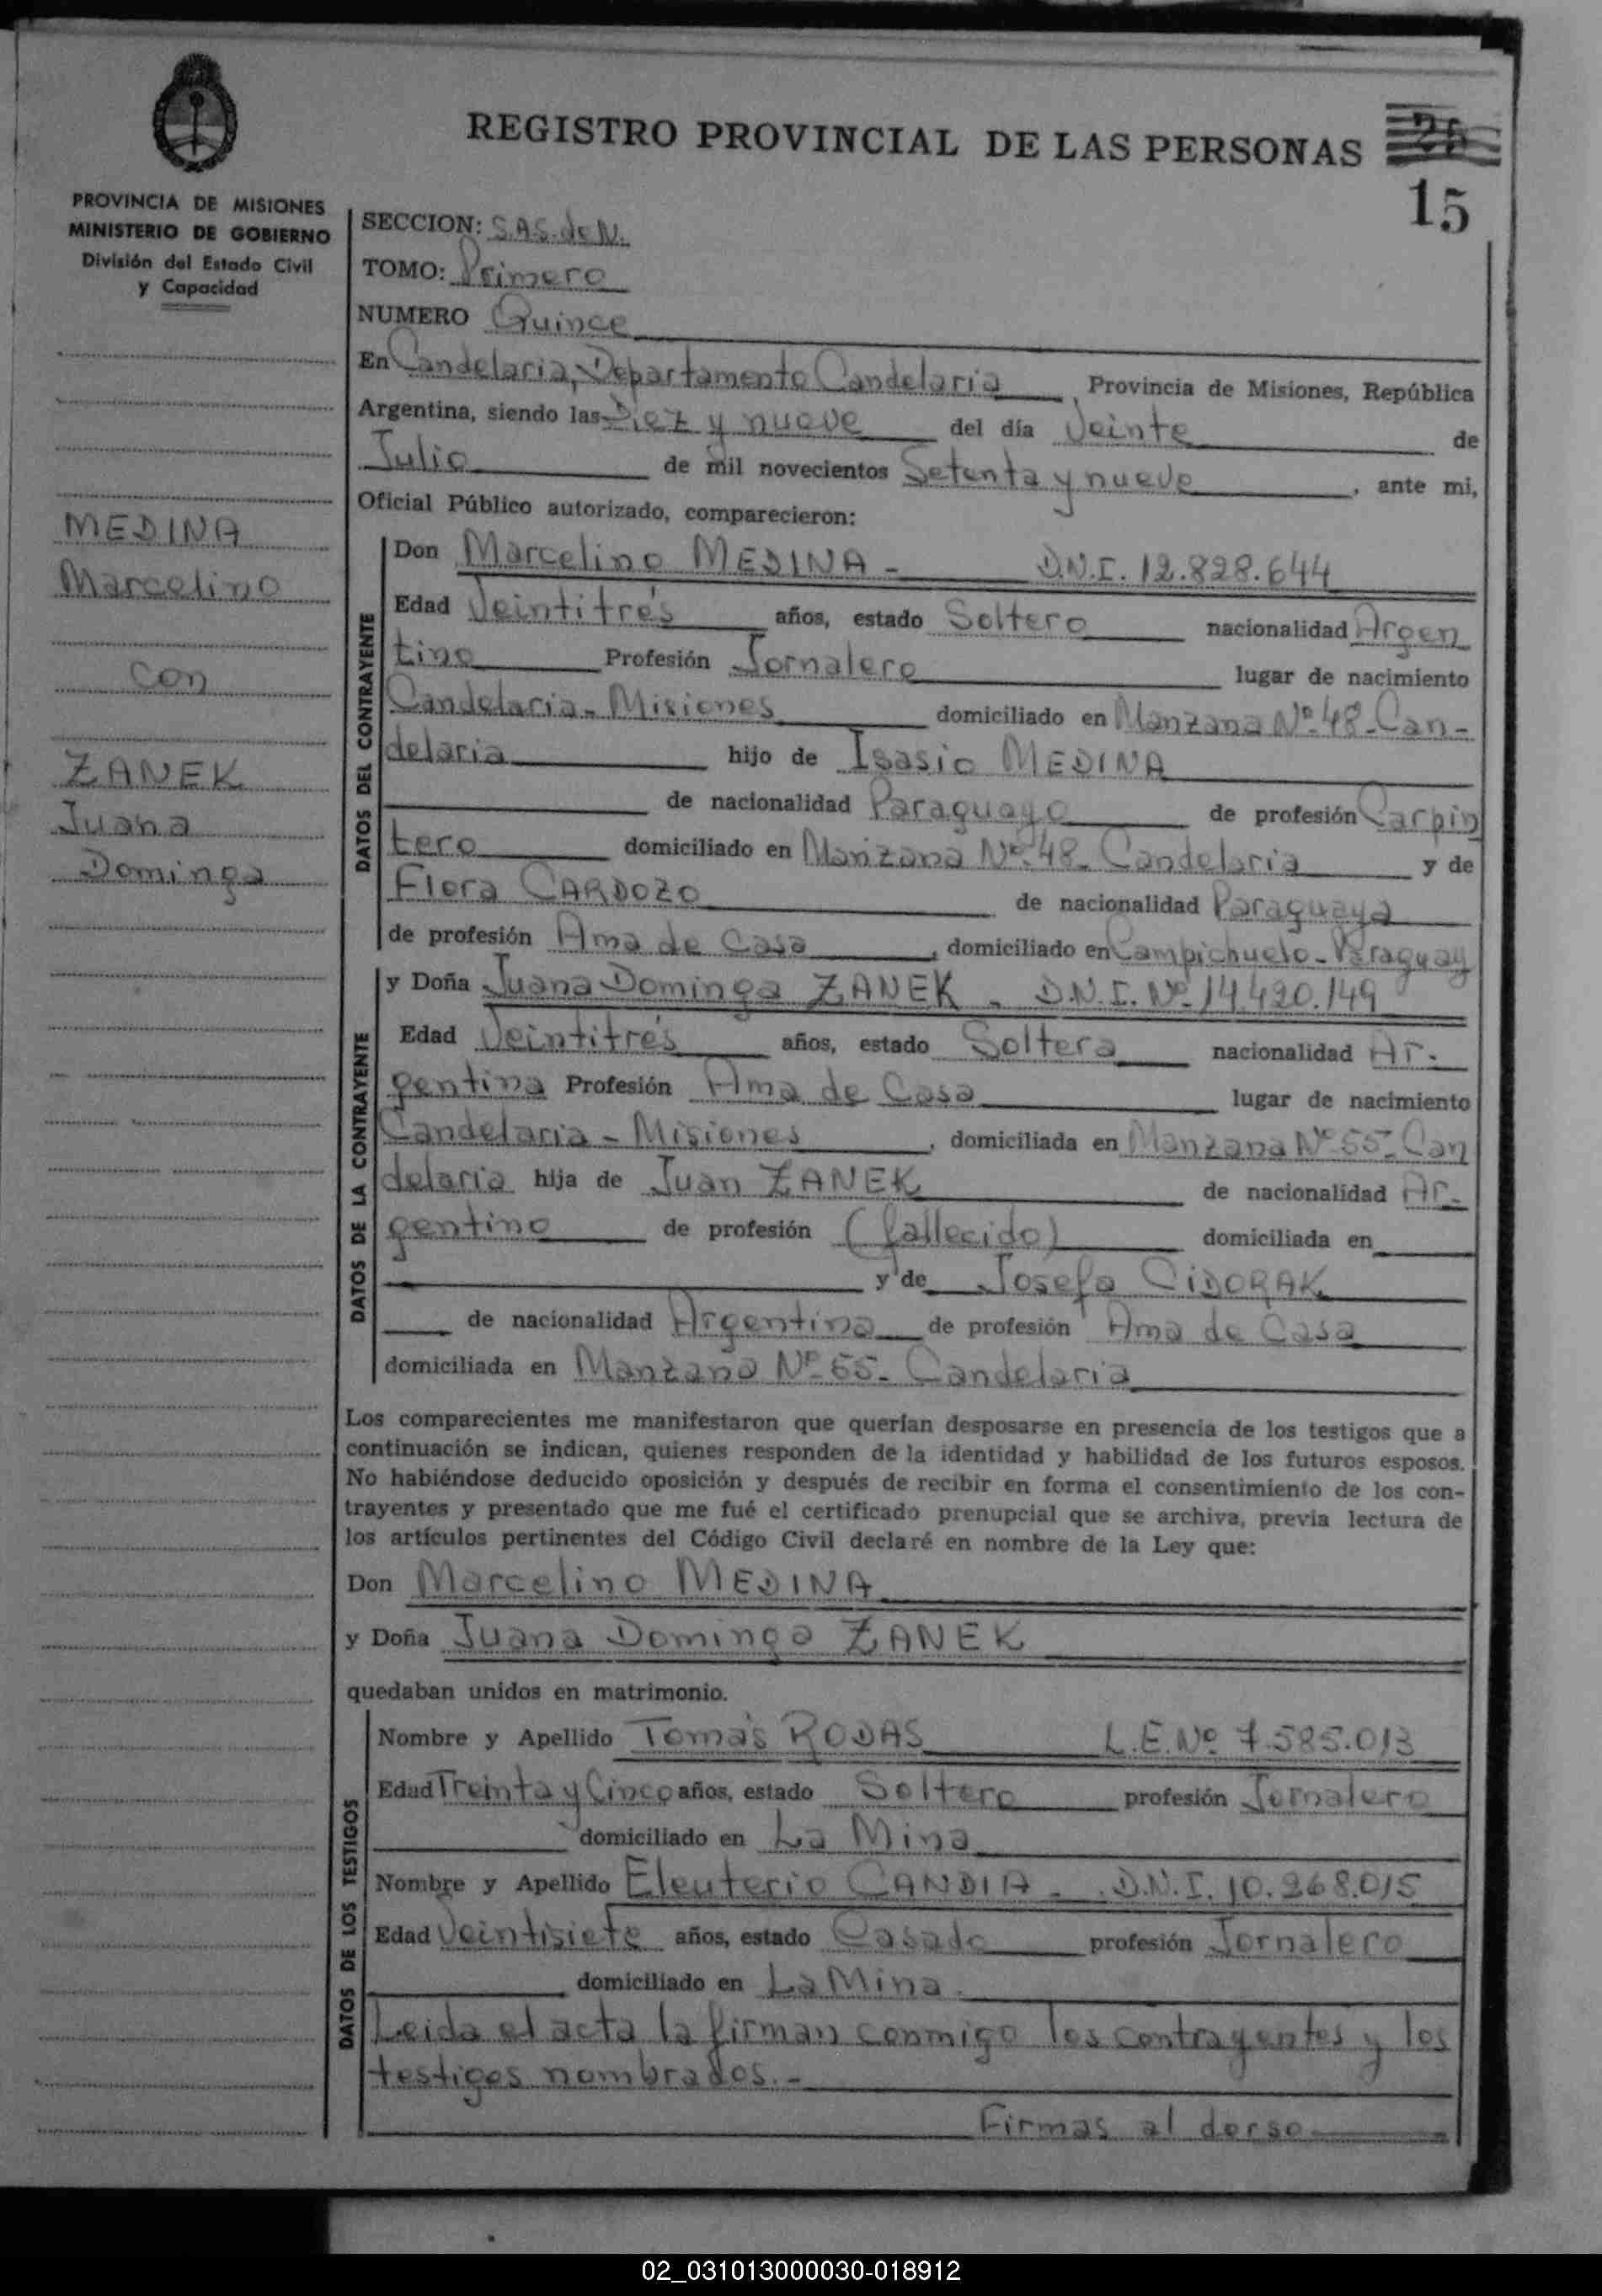 REGISTRO PROVINCIAL DE LAS PERSONAS
15
PROVINCIA DE MISIONES
MINISTERIO DE GOBIERNO
División del Estado Civil
y Capacidad
MEDINA
Marcelino
con
ZANEK
Juana
Dominga
SECCION: S.A.S. de N.
TOMO: Primero
NUMERO Quince
En Candelaria, Departamento Candelaria, Provincia de Misiones, República
Argentina, siendo las Diez y nueve del día Veinte de
Julio de mil novecientos Setenta y nueve, ante mi,
Oficial Público autorizado, comparecieron:
DATOS DEL CONTRAYENTE
Don Marcelino MEDINA - D.N.I. 12.828.644
Edad Veintitrés años, estado Soltero nacionalidad Argen
tino Profesión Jornalero lugar de nacimiento
Candelaria - Misiones domiciliado en Manzana Nº 48 - Can-
delaria hijo de Isasio MEDINA
de nacionalidad Paraguayo de profesión Carpin
tero domiciliado en Manzana Nº 48 - Candelaria y de
Flora CARDOZO de nacionalidad Paraguaya
de profesión Ama de Casa, domiciliado en Campichuelo - Paraguay
DATOS DE LA CONTRAYENTE
y Doña Juana Dominga ZANEK - D.N.I. Nº 14.420.149
Edad Veintitrés años, estado Soltera nacionalidad Ar-
gentina Profesión Ama de Casa lugar de nacimiento
Candelaria - Misiones, domiciliada en Manzana Nº 55 - Can
delaria hija de Juan ZANEK de nacionalidad Ar-
gentino de profesión (fallecido) domiciliada en
y de Josefa CIDORAK
de nacionalidad Argentina de profesión Ama de Casa
domiciliada en Manzana Nº 55 - Candelaria
Los comparecientes me manifestaron que querían desposarse en presencia de los testigos que a
continuación se indican, quienes responden de la identidad y habilidad de los futuros esposos.
No habiéndose deducido oposición y después de recibir en forma el consentimiento de los con-
trayentes y presentado que me fué el certificado prenupcial que se archiva, previa lectura de
los artículos pertinentes del Código Civil declaré en nombre de la Ley que:
Don Marcelino MEDINA
y Doña Juana Dominga ZANEK
quedaban unidos en matrimonio.
DATOS DE LOS TESTIGOS
Nombre y Apellido Tomás RODAS L.E. Nº 7.585.013
Edad Treinta y Cinco años, estado Soltero profesión Jornalero
domiciliado en La Mina
Nombre y Apellido Eleuterio CANDIA - D.N.I. 10.268.015
Edad Veintisiete años, estado Casado profesión Jornalero
domiciliado en La Mina
Leida el acta la firman conmigo los contrayentes y los
testigos nombrados.-
Firmas al dorso
02_031013000030-018912